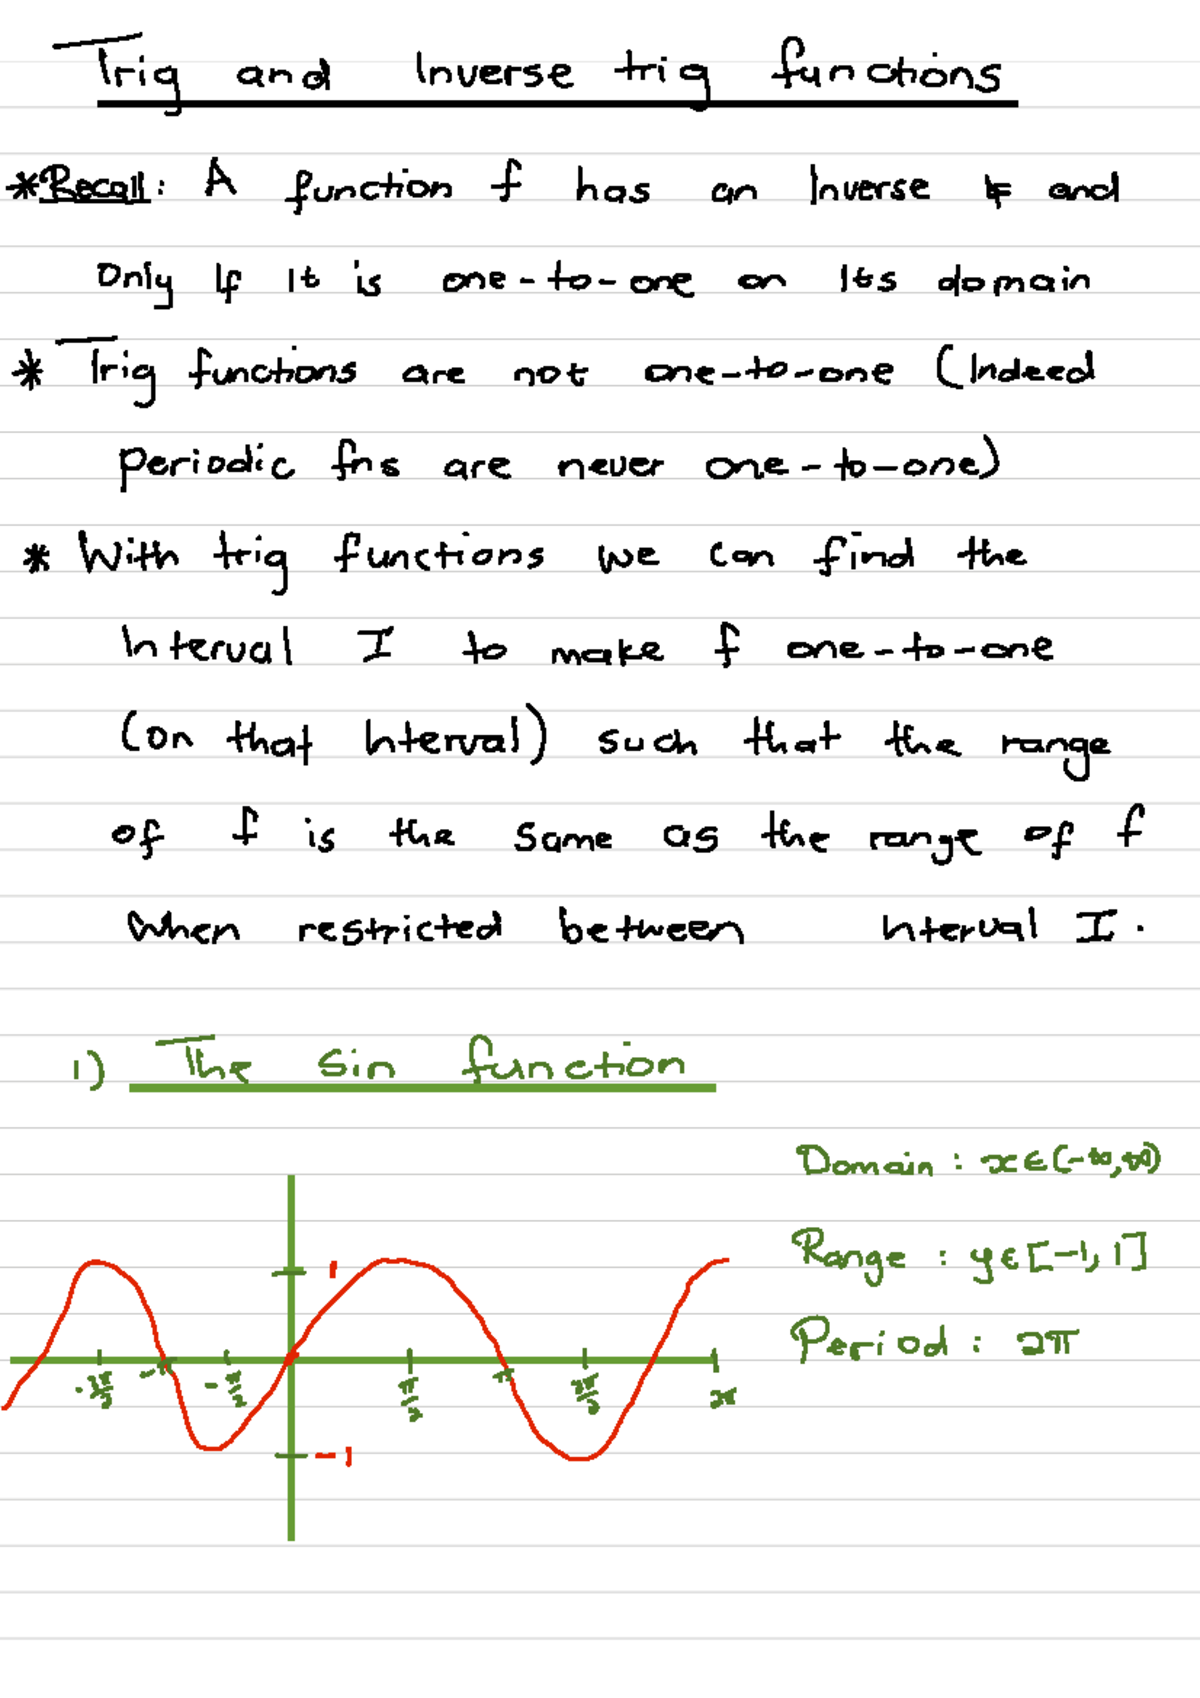 Trig and Inverse trig functions
*Recall: A function f has an Inverse if and
Only if It is one-to-one on Its domain
* Trig functions are not one-to-one (Indeed
periodic fns are never one-to-one)
* With trig functions we can find the
Interval I to make f one-to-one
(on that Interval) such that the range
of f is the same as the range of f
when restricted between Interval I.
1) The Sin function
Domain : x∈(-∞,∞)
Range : y∈[-1, 1]
Period : 2π
1
-3π/2 -π -π/2 π/2 π 3π/2 2π
-1